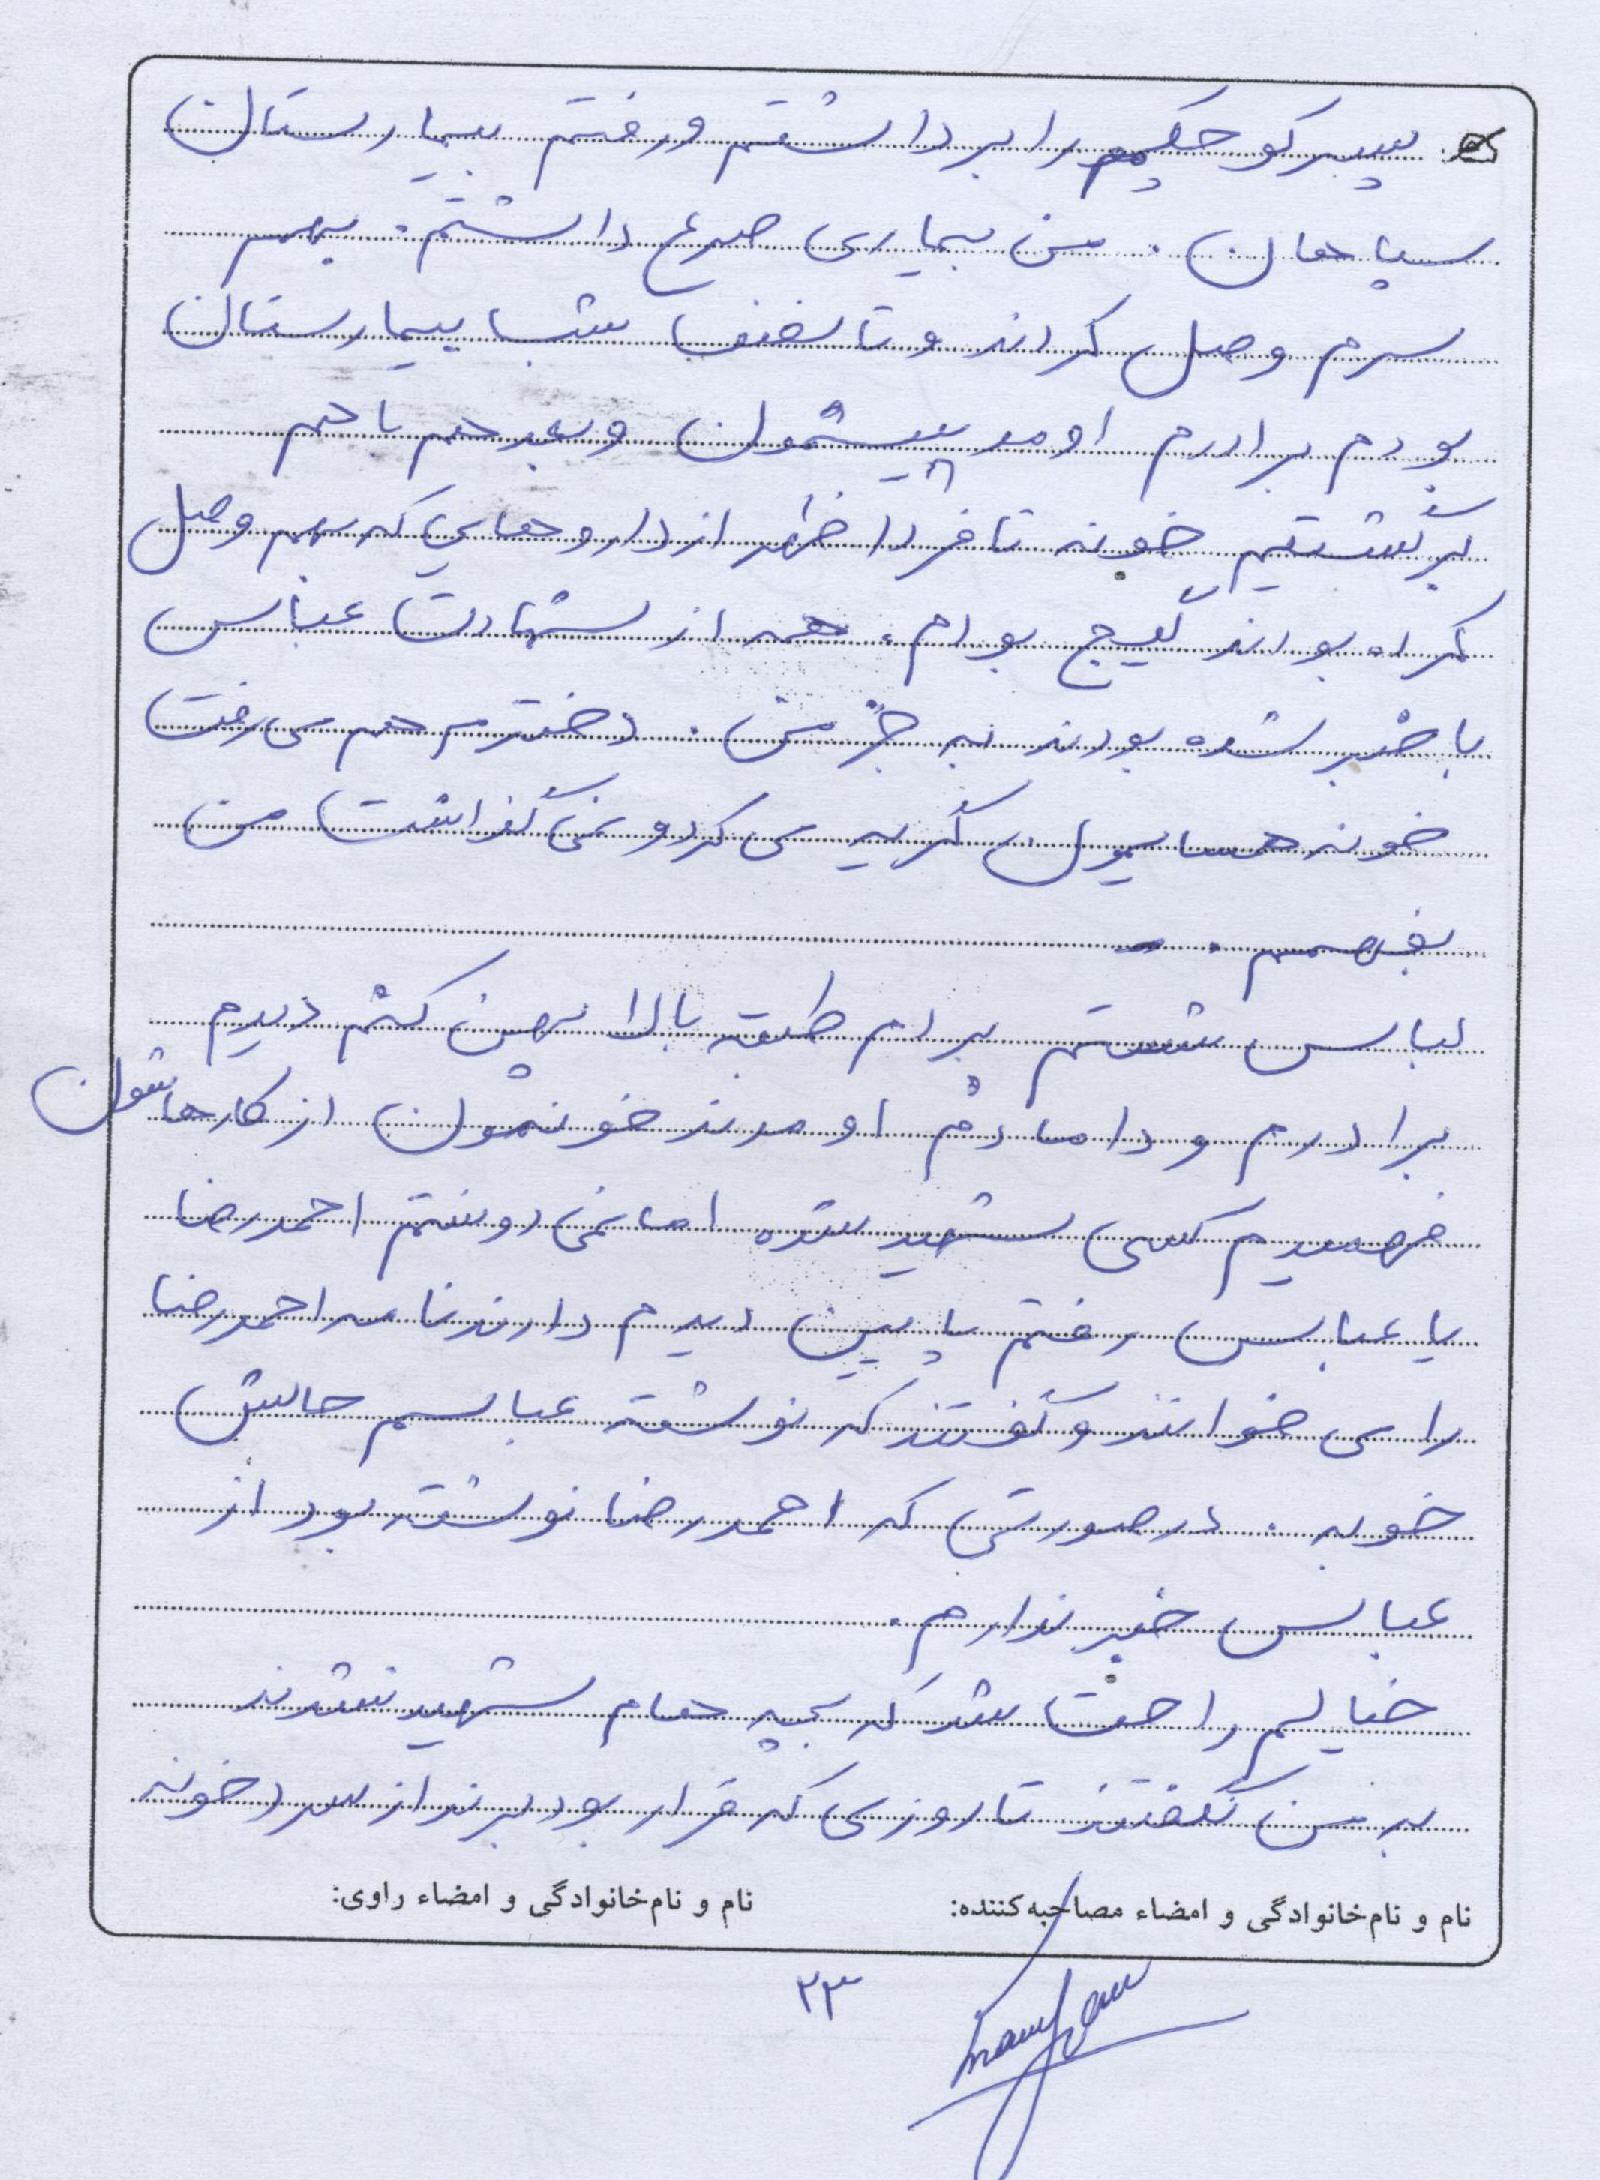 پسر کوچکم را برداشتم و رفتم بیمارستان
سپاهان. من بیماری صرع داشتم. بهم
سرم وصل کردند و تا نصف شب بیمارستان
بودم برادرم اومد پیشمون و بعد هم با هم
برگشتیم خونه تا فردا ظهر از داروهایی که بهم وصل
کرده بودند گیج بودم، همه از شهادت عباس
با خبر شده بودند به جز من. دخترم هم می رفت
خونه همسایمون گریه می کرد و نمی گذاشت من
بفهمم.
لباس شستم بردم طبقه بالا پهن کنم دیدم
برادرم و دامادم اومدند خونمون از کارهاشون
فهمیدم کسی شهید شده اما نمی دونستم احمدرضا
یا عباس رفتم پایین دیدم دارند نامه احمدرضا
را می خوانند و گفتند که نوشته عباسم حالش
خوبه. در صورتی که احمدرضا نوشته بود از
عباس خبر ندارم.
خیالم راحت شد که بچه هام شهید نشدند
به من نگفتند تا روزی که قرار بود برند از سردخونه
نام و نام‌خانوادگی و امضاء مصاحبه‌کننده: نام و نام‌خانوادگی و امضاء راوی:
۲۳